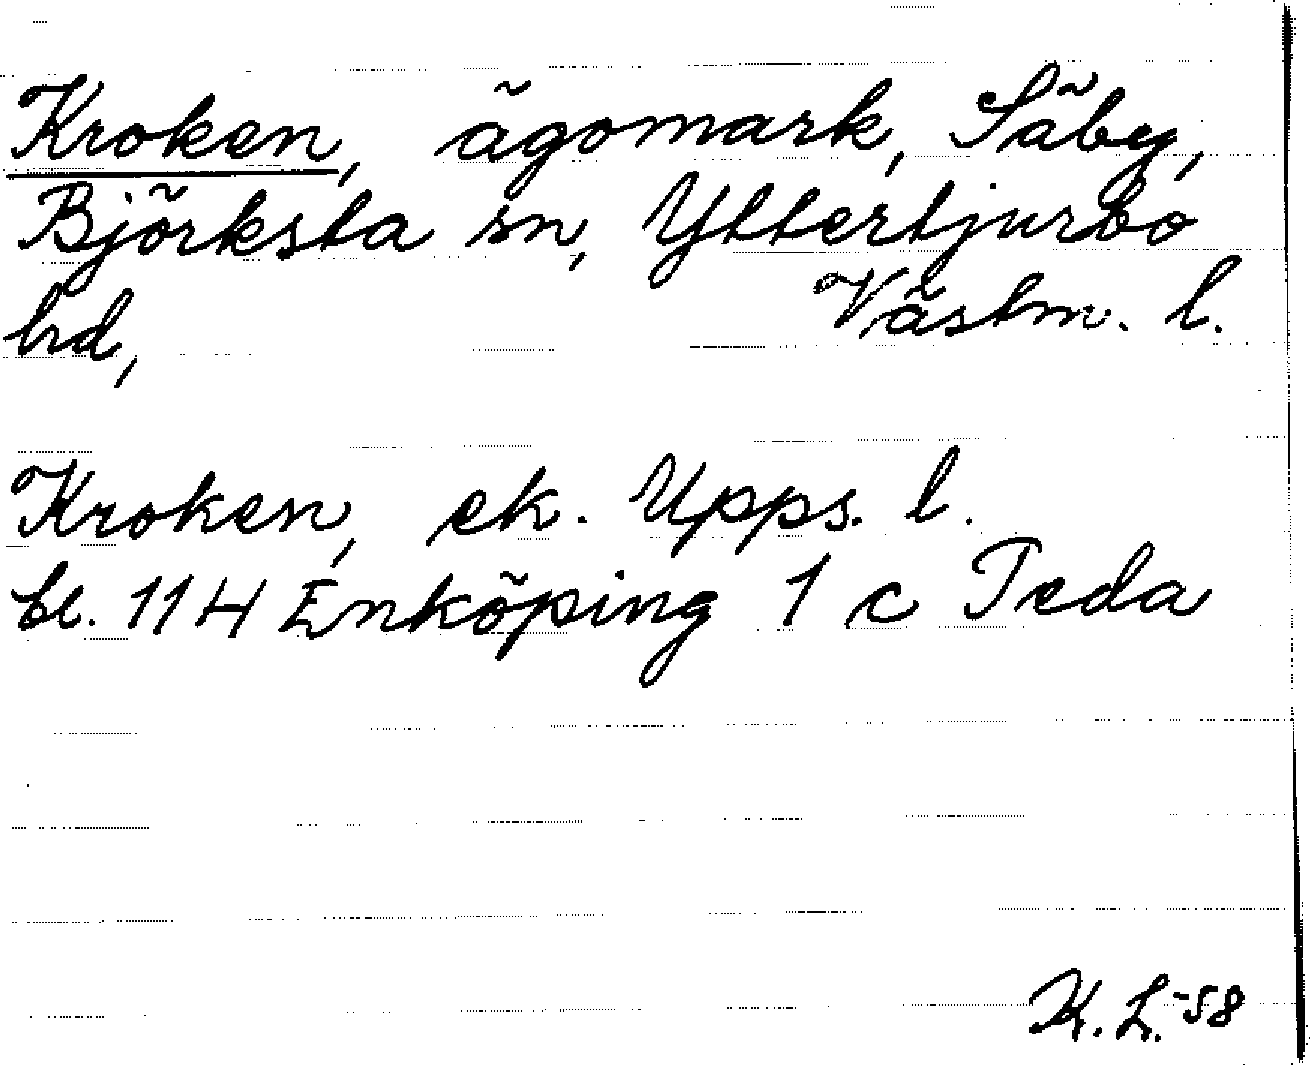 Kroken, ägomark, Säby,
Björksta sn, Yttertjurbo
hd, Västm. l.
Kroken, ek. Upps. l.
bl. 114 Enköping 1 c Teda
K. L. -58